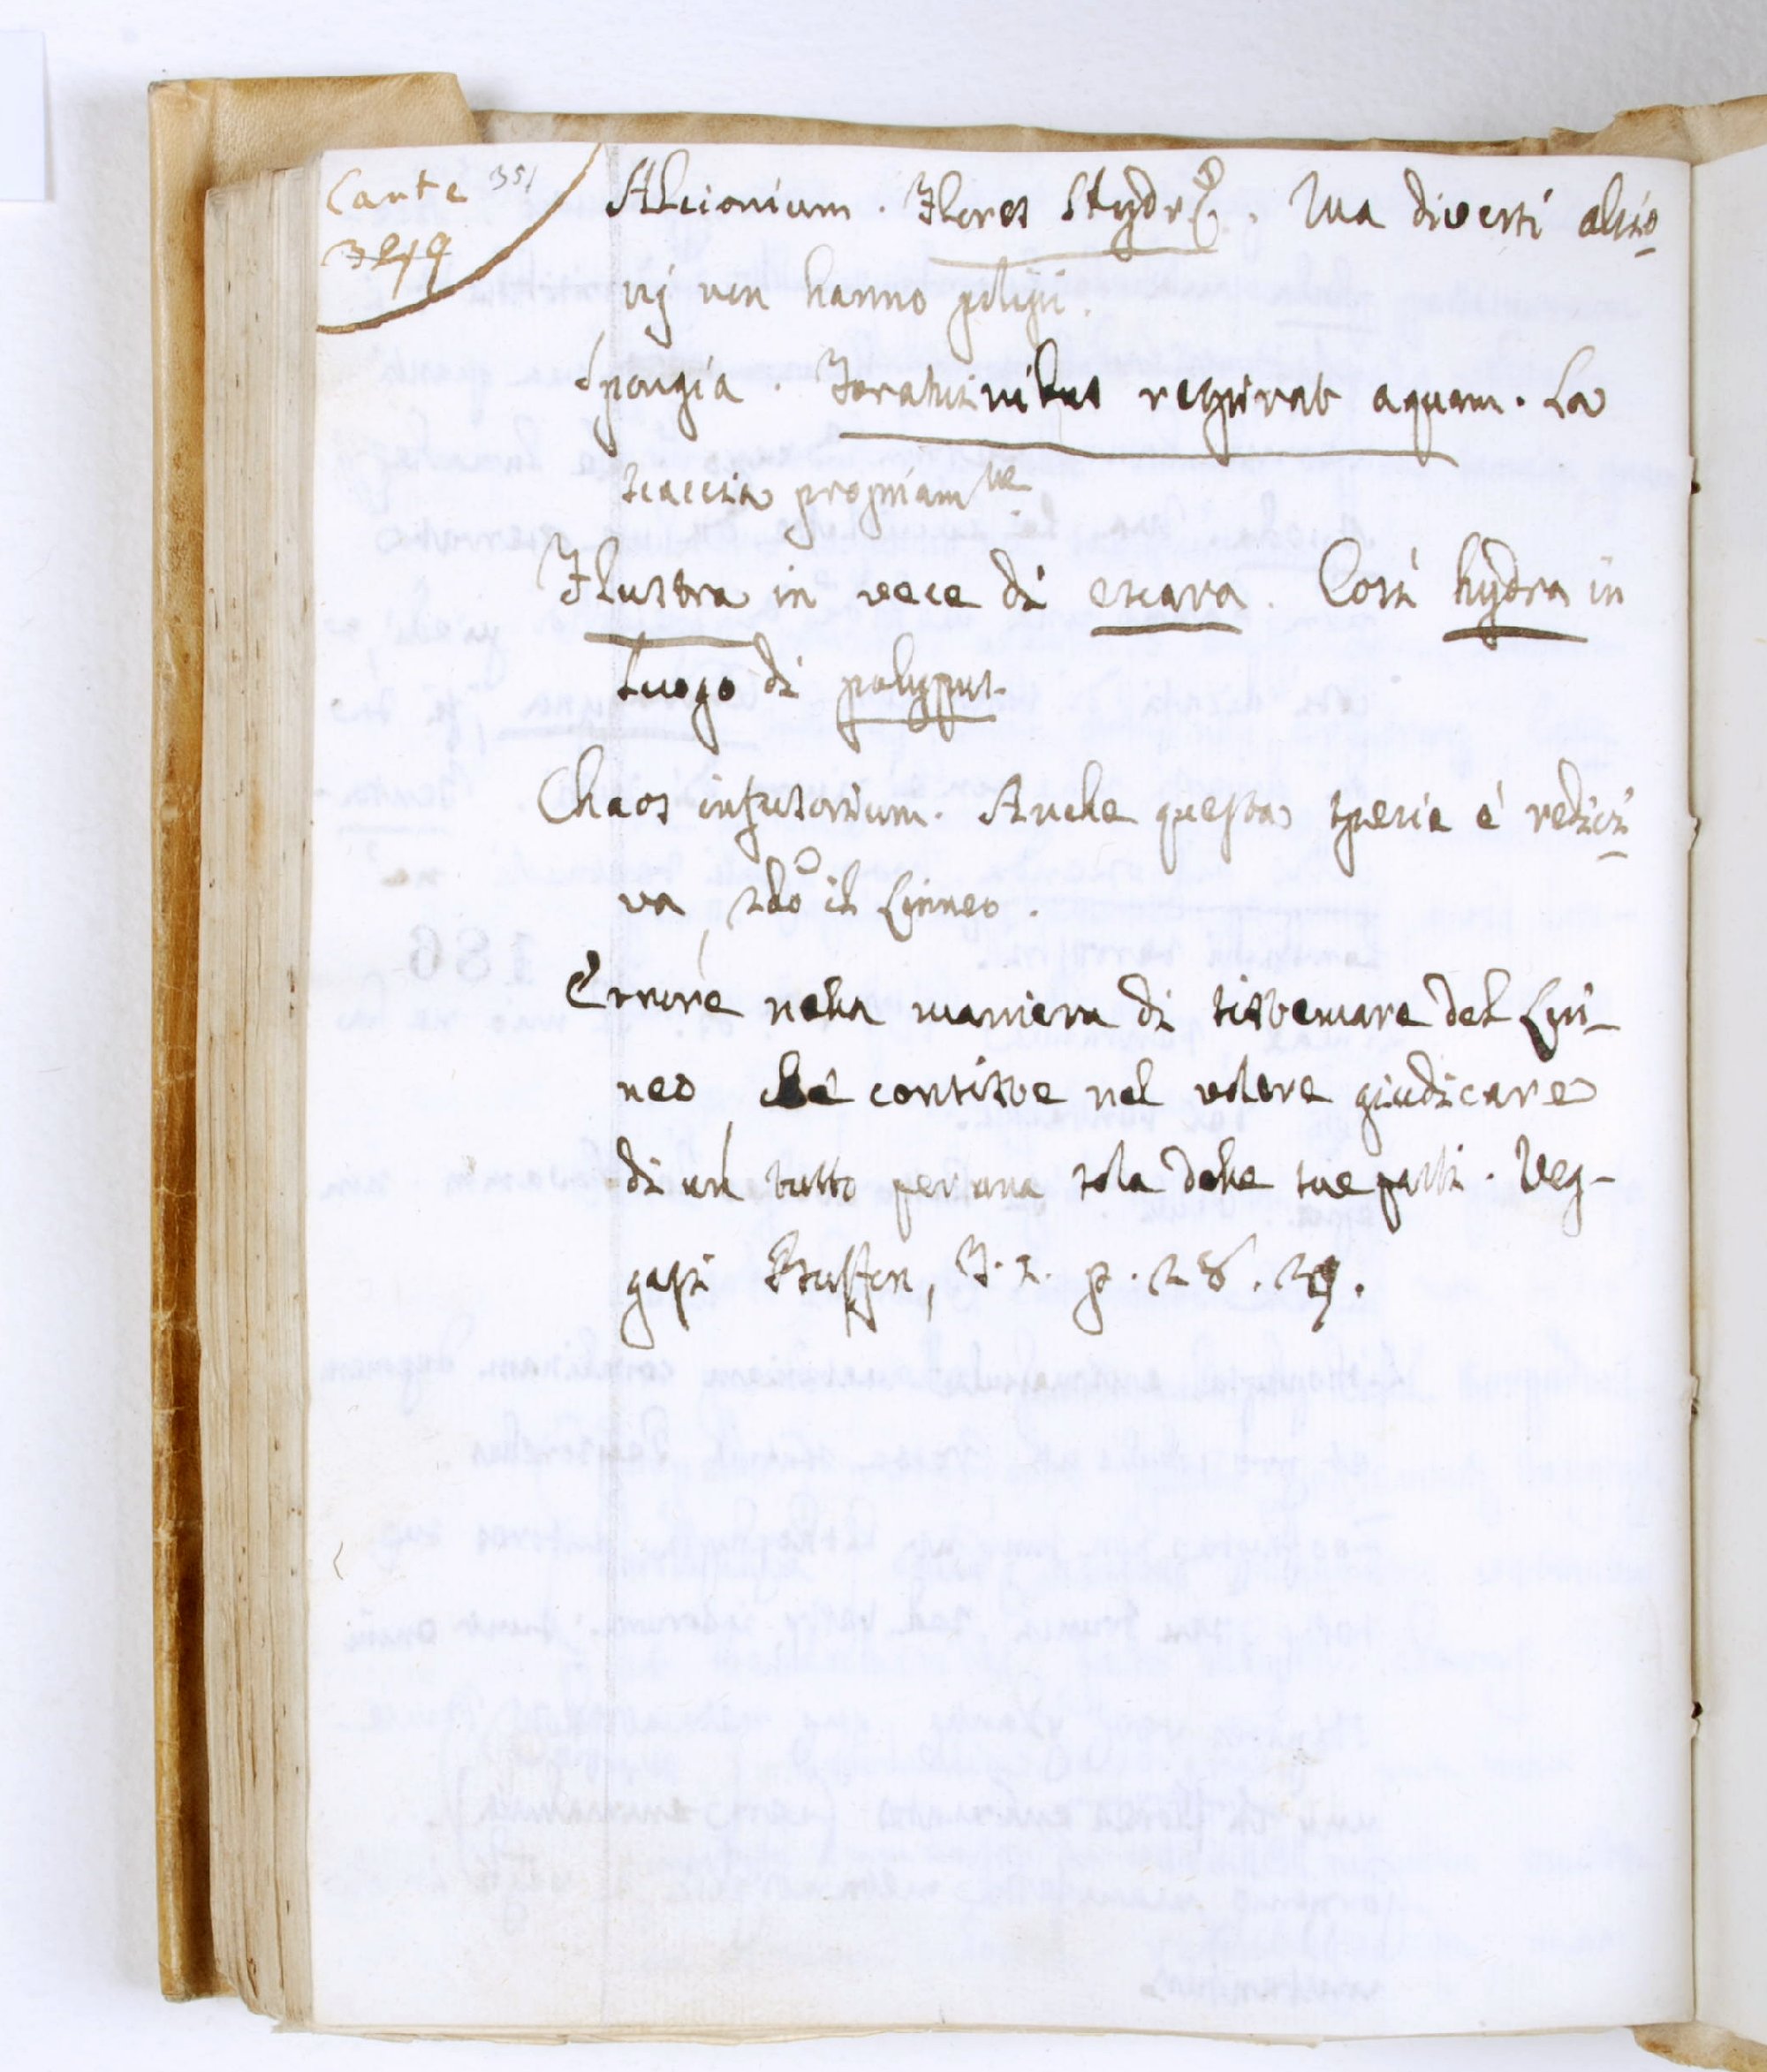 Carte 351
3419
Alcionium. Flores Hydræ. Ma diversi alcio
nj non hanno polipi.
Spongia. Foraminibus respirat aquam. La
scaccia propriam.te
Flustra in vece di escara. Così hydra in
luogo di polypus.
Chaos infusorium. Anche questa specie è redivi
va s.do il Linneo.
Errore nella maniera di sistemare del Lin-
neo che consiste nel volere giudicare
di un tutto per una sola delle sue parti. Veg-
gasi Buffon, T. I. p. 28. 29.